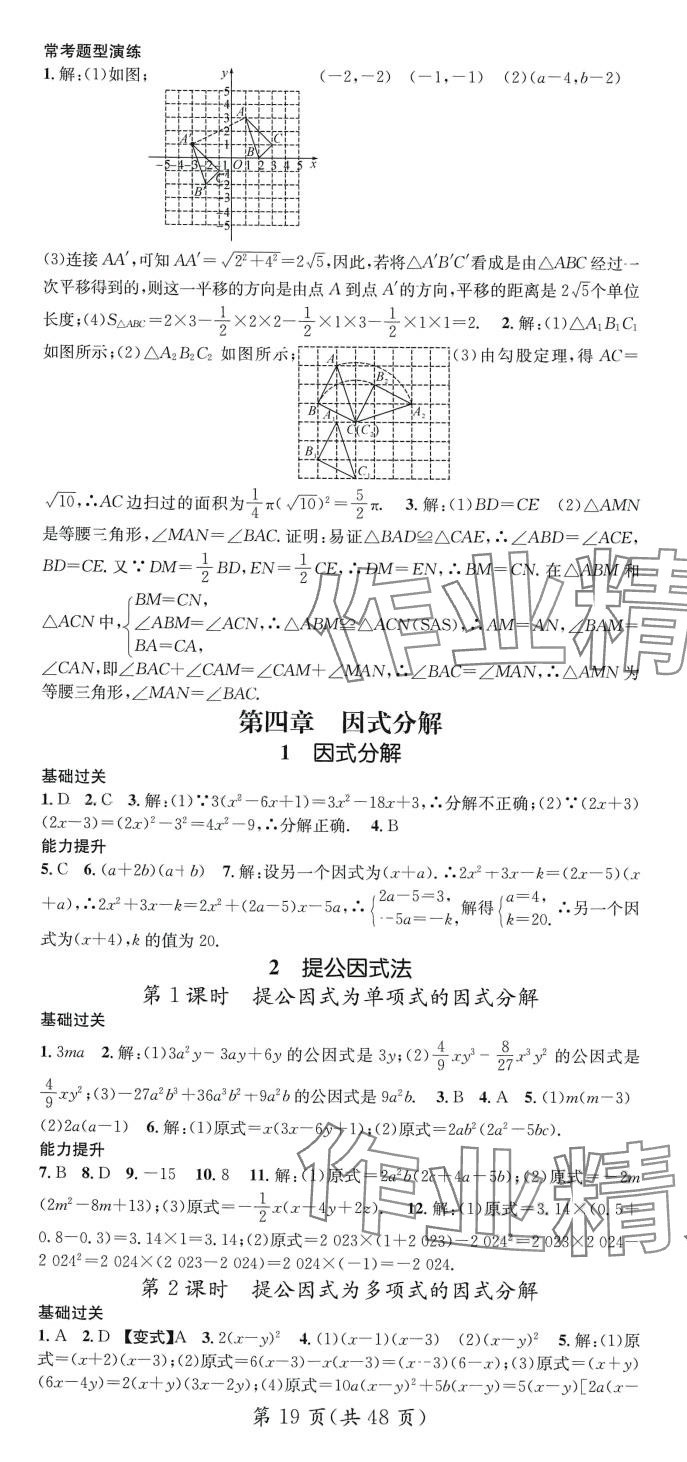 常考题型演练
1. 解:(1)如图; (-2,-2) (-1,-1) (2)(a-4,b-2)
(3)连接 AA′,可知 AA′=√(2²+4²)=2√5,因此,若将△A′B′C′看成是由△ABC 经过一
次平移得到的,则这一平移的方向是由点 A 到点 A′的方向,平移的距离是 2√5个单位
长度;(4)S△ABC=2×3-1/2×2×2-1/2×1×3-1/2×1×1=2. 2. 解:(1)△A₁B₁C₁
如图所示;(2)△A₂B₂C₂ 如图所示; (3)由勾股定理,得 AC=
√10,∴AC 边扫过的面积为1/4π(√10)²=5/2π. 3. 解:(1)BD=CE (2)△AMN
是等腰三角形,∠MAN=∠BAC. 证明:易证△BAD≌△CAE,∴∠ABD=∠ACE,
BD=CE. 又∵DM=1/2BD,EN=1/2CE,∴DM=EN,∴BM=CN. 在△ABM 和
△ACN 中,{BM=CN,
∠ABM=∠ACN,∴△ABM≌△ACN(SAS),∴AM=AN,∠BAM=
BA=CA,
∠CAN,即∠BAC+∠CAM=∠CAM+∠MAN,∴∠BAC=∠MAN,∴△AMN 为
等腰三角形,∠MAN=∠BAC.
第四章 因式分解
1 因式分解
基础过关
1. D 2. C 3. 解:(1)∵3(x²-6x+1)=3x²-18x+3,∴分解不正确;(2)∵(2x+3)
(2x-3)=(2x)²-3²=4x²-9,∴分解正确. 4. B
能力提升
5. C 6. (a+2b)(a+b) 7. 解:设另一个因式为(x+a). ∴2x²+3x-k=(2x-5)(x
+a),∴2x²+3x-k=2x²+(2a-5)x-5a,∴{2a-5=3, -5a=-k, 解得{a=4, k=20. ∴另一个因
式为(x+4),k 的值为 20.
2 提公因式法
第 1 课时 提公因式为单项式的因式分解
基础过关
1. 3ma 2. 解:(1)3a²y-3ay+6y 的公因式是 3y;(2)4/9xy³-8/27x³y² 的公因式是
4/9xy²;(3)-27a²b³+36a³b²+9a²b 的公因式是 9a²b. 3. B 4. A 5. (1)m(m-3)
(2)2a(a-1) 6. 解:(1)原式=x(3x-6y+1);(2)原式=2ab²(2a²-5bc).
能力提升
7. B 8. D 9. -15 10. 8 11. 解:(1)原式=2a²b(2c+4a-5b);(2)原式=-2m
(2m²-8m+13);(3)原式=-1/2x(x-4y+2z). 12. 解:(1)原式=3.14×(0.5+
0.8-0.3)=3.14×1=3.14;(2)原式=2 023×(1+2 023)-2 024²=2 023×2 024-
2 024²=2 024×(2 023-2 024)=2 024×(-1)=-2 024.
第 2 课时 提公因式为多项式的因式分解
基础过关
1. A 2. D 【变式】A 3. 2(x-y)² 4. (1)(x-1)(x-3) (2)(x-y)² 5. 解:(1)原
式=(x+2)(x-3);(2)原式=6(x-3)-x(x-3)=(x-3)(6-x);(3)原式=(x+y)
(6x-4y)=2(x+y)(3x-2y);(4)原式=10a(x-y)²+5b(x-y)=5(x-y)[2a(x-
第 19 页(共 48 页)
作业精
作业精